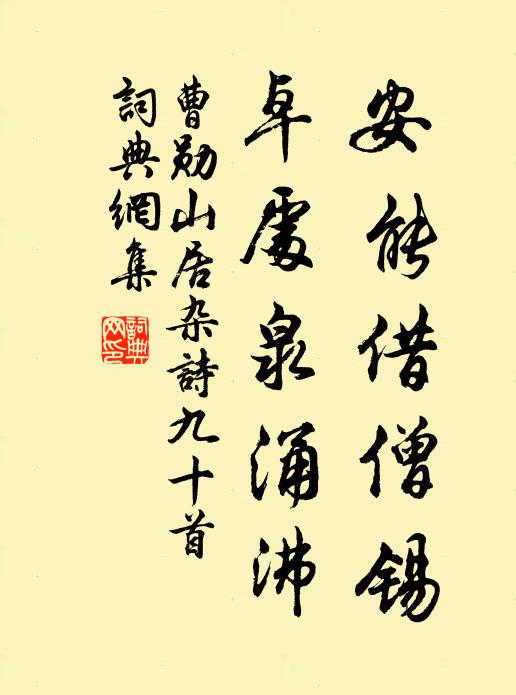 安能借僧锡
卓處泉涌沸
曹勋山居杂詩九十首
詞典網集
詞典網印